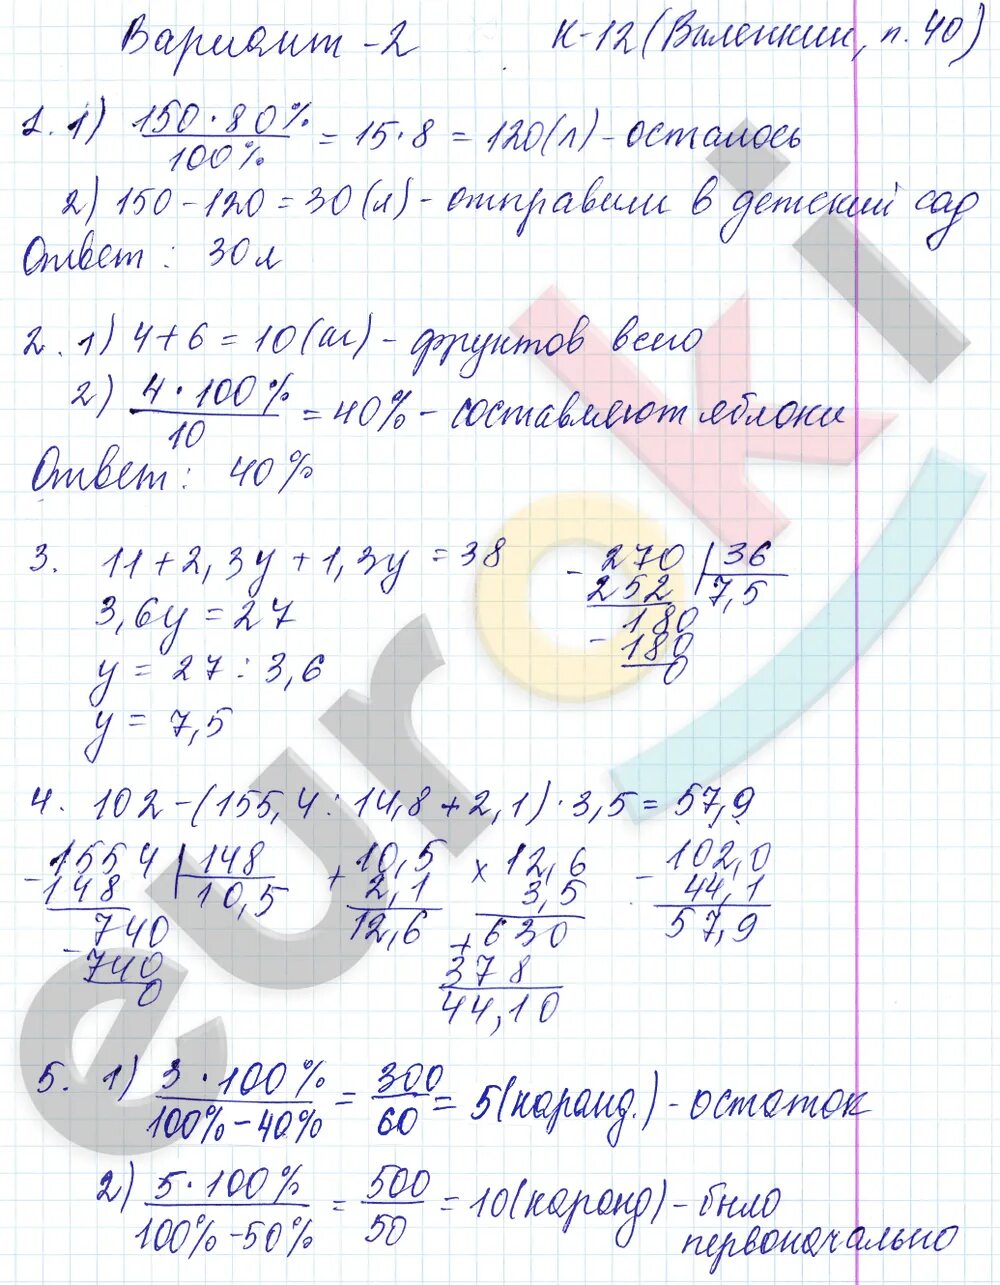 Вариант-2 К-12 (Виленкин, п. 40)
1. 1) 150·80% / 100% = 15·8 = 120(л) - осталось
2) 150-120 = 30(л) - отправили в детский сад
Ответ: 30л
2. 1) 4+6 = 10(кг) - фруктов всего
2) 4·100% / 10 = 40% - составляют яблоки
Ответ: 40%
3. 11+2,3y+1,3y = 38
3,6y = 27
y = 27 : 3,6
y = 7,5
- 270 | 36
252 7,5
- 180
180
0
4. 102-(155,4 : 14,8 + 2,1)·3,5 = 57,9
- 1554 | 148 + 10,5 × 12,6 - 102,0
148 10,5 2,1 3,5 44,1
- 740 12,6 + 630 57,9
740 378
0 44,10
5. 1) 3·100% / 100%-40% = 300 / 60 = 5(каранд.) - остаток
2) 5·100% / 100%-50% = 500 / 50 = 10(каранд) - было
первоначально
euroki